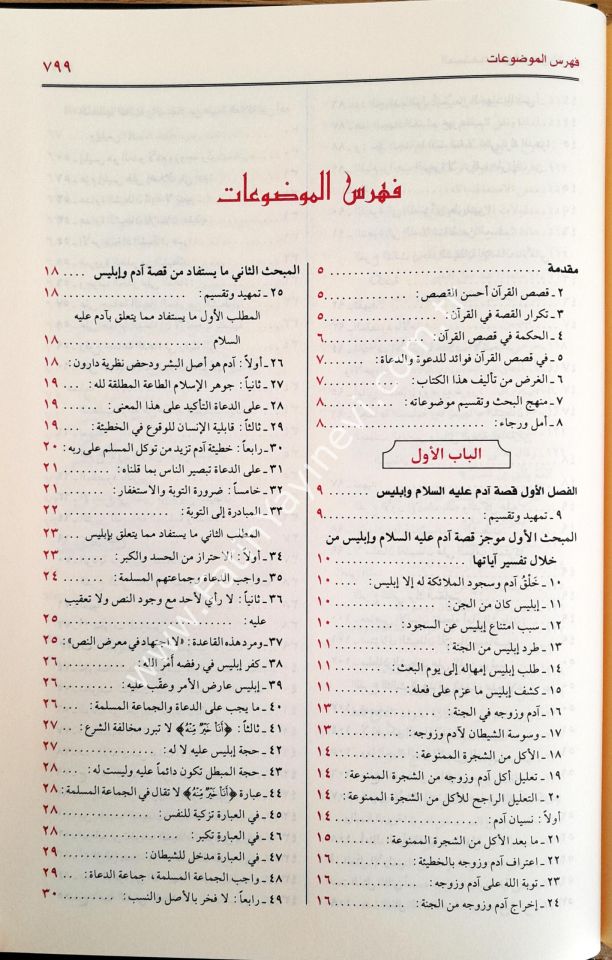 فهرس الموضوعات ٧٩٩
فهرس الموضوعات
مقدمة ٥
٢ ـ قصص القرآن أحسن القصص: ٥
٣ ـ تكرار القصة في القرآن: ٥
٤ ـ الحكمة في قصص القرآن: ٦
٥ ـ في قصص القرآن فوائد للدعوة والدعاة: ٧
٦ ـ الغرض من تأليف هذا الكتاب: ٧
٧ ـ منهج البحث وتقسيم موضوعاته: ٧
٨ ـ أمل ورجاء: ٨
الباب الأول
الفصل الأول قصة آدم عليه السلام وإبليس ٩
٩ ـ تمهيد وتقسيم: ٩
المبحث الأول موجز قصة آدم عليه السلام وإبليس من
خلال تفسير آياتها ١٠
١٠ ـ خَلْقُ آدم وسجود الملائكة له إلا إبليس: ١٠
١١ ـ إبليس كان من الجن: ١٠
١٢ ـ سبب امتناع إبليس عن السجود: ١٠
١٣ ـ طرد إبليس من الجنة: ١١
١٤ ـ طلب إبليس إمهاله إلى يوم البعث: ١١
١٥ ـ كشف إبليس ما عزم على فعله: ١١
١٦ ـ آدم وزوجه في الجنة: ١٣
١٧ ـ وسوسة الشيطان لآدم وزوجه: ١٣
١٨ ـ الأكل من الشجرة الممنوعة: ١٤
١٩ ـ تعليل أكل آدم وزوجه من الشجرة الممنوعة: ١٤
٢٠ ـ التعليل الراجح للأكل من الشجرة الممنوعة: ١٤
أولاً: نسيان آدم: ١٤
٢١ ـ ما بعد الأكل من الشجرة الممنوعة: ١٥
٢٢ ـ اعتراف آدم وزوجه بالخطيئة: ١٦
٢٣ ـ توبة الله على آدم وزوجه: ١٦
٢٤ ـ إخراج آدم وزوجه من الجنة: ١٦
المبحث الثاني ما يستفاد من قصة آدم وإبليس ١٨
٢٥ ـ تمهيد وتقسيم: ١٨
المطلب الأول ما يستفاد مما يتعلق بآدم عليه
السلام ١٨
٢٦ ـ أولاً: آدم هو أصل البشر ودحض نظرية دارون: ١٨
٢٧ ـ ثانياً: جوهر الإسلام الطاعة المطلقة لله: ١٩
٢٨ ـ على الدعاة التأكيد على هذا المعنى: ١٩
٢٩ ـ ثالثاً: قابلية الإنسان للوقوع في الخطيئة: ١٩
٣٠ ـ رابعاً: خطيئة آدم تزيد من توكل المسلم على ربه: ٢٠
٣١ ـ على الدعاة تبصير الناس بما قلناه: ٢١
٣٢ ـ خامساً: ضرورة التوبة والاستغفار: ٢١
٣٣ ـ المبادرة إلى التوبة: ٢٢
المطلب الثاني ما يستفاد مما يتعلق بإبليس ٢٣
٣٤ ـ أولاً: الاحتراز من الحسد والكبر: ٢٣
٣٥ ـ واجب الدعاة وجماعتهم المسلمة: ٢٤
٣٦ ـ ثانياً: لا رأي لأحد مع وجود النص ولا تعقيب
عليه: ٢٥
٣٧ـ ومرد هذه القاعدة: «لا اجتهاد في معرض النص»: ٢٥
٣٨ ـ كفر إبليس في رفضه أَمْرَ الله: ٢٦
٣٩ ـ إبليس عارض الأمر وعقَّب عليه: ٢٦
٤٠ ـ ما يجب على الدعاة والجماعة المسلمة: ٢٦
٤١ ـ ثالثاً: ﴿أَنَا خَيْرٌ مِنْهُ﴾ لا تبرر مخالفة الشرع: ٢٧
٤٢ ـ حجة إبليس عليه لا له: ٢٧
٤٣ ـ حجة المبطل تكون دائماً عليه وليست له: ٢٨
٤٤ـ عبارة ﴿أَنَا خَيْرٌ مِنْهُ﴾ لا تقال في الجماعة المسلمة: ٢٨
٤٥ ـ في العبارة تزكية للنفس: ٢٨
٤٦ ـ في العبارة تكبر: ٢٨
٤٧ ـ في العبارة مدخل للشيطان: ٢٩
٤٨ ـ واجب الجماعة المسلمة، جماعة الدعاة: ٢٩
٤٩ ـ رابعاً: لا فخر بالأصل والنسب: ٣٠